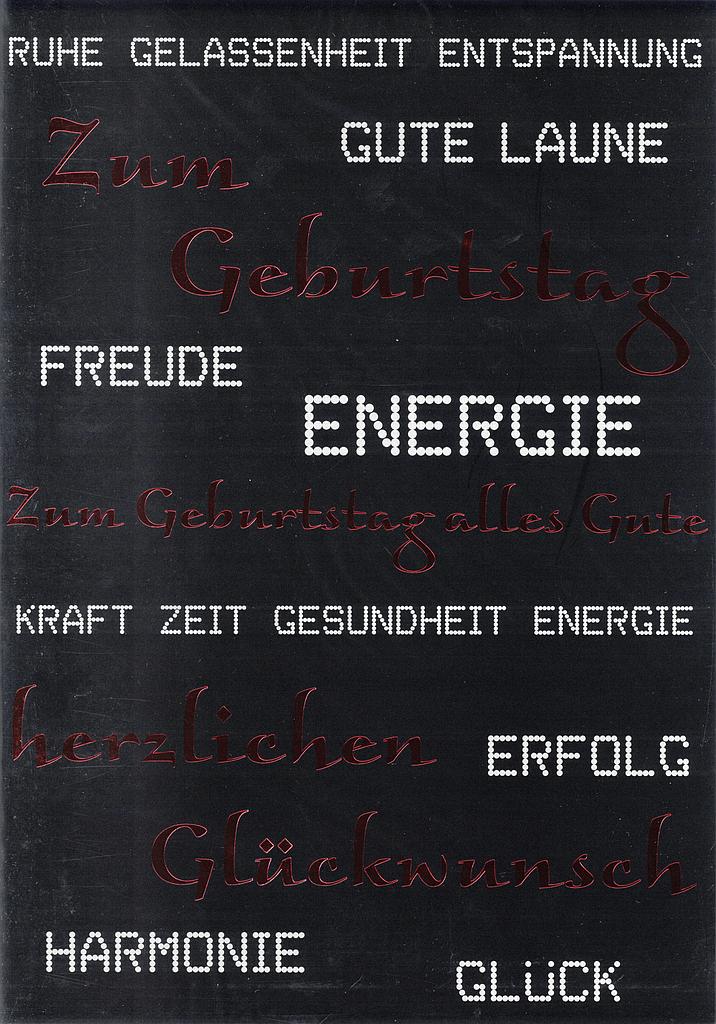 RUHE GELASSENHEIT ENTSPANNUNG
GUTE LAUNE
Zum
Geburtstag
FREUDE
ENERGIE
Zum Geburtstag alles Gute
KRAFT ZEIT GESUNDHEIT ENERGIE
herzlichen
ERFOLG
Glückwunsch
HARMONIE
GLÜCK